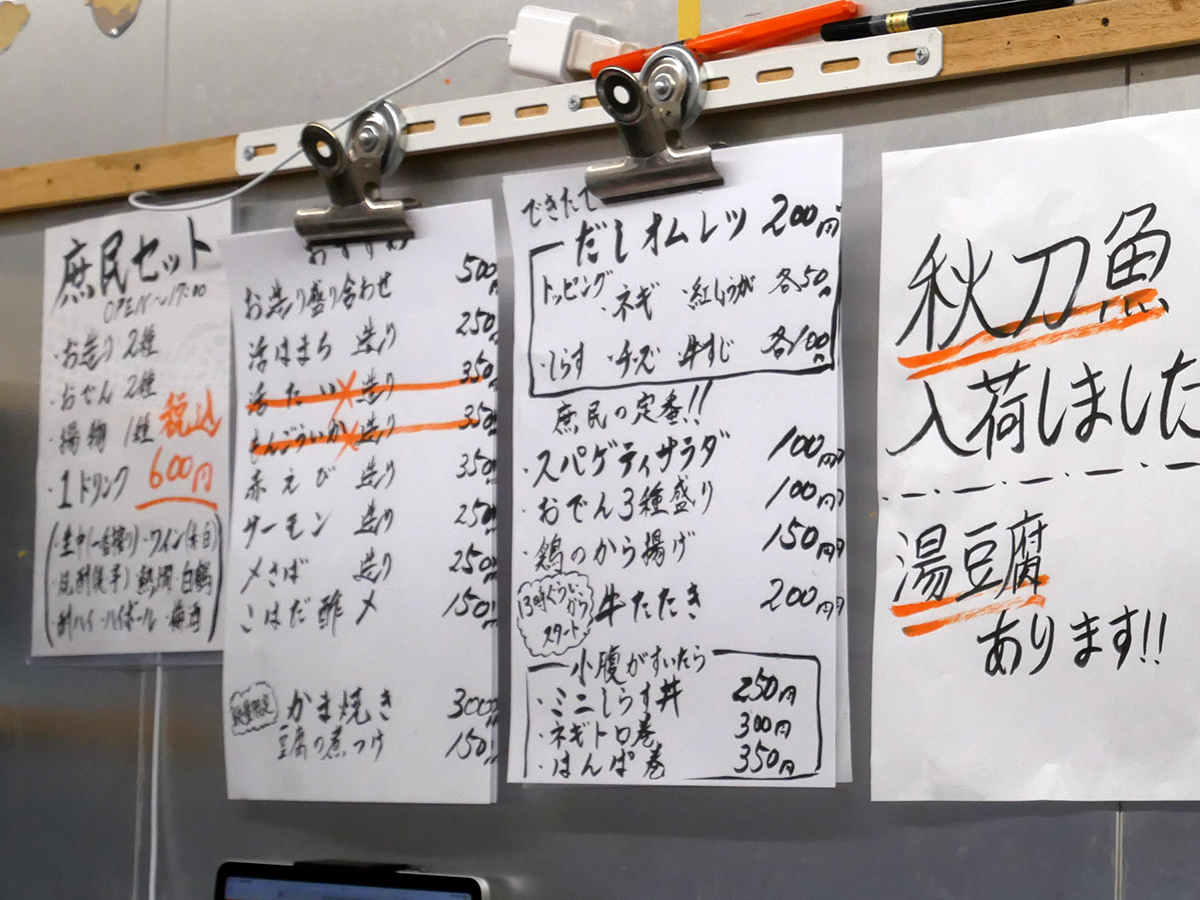 庶民セット
OPEN〜17:00
・お造り2種
・おでん2種
・揚物 1種
・1ドリンク
税込
600円
(・生中(一番搾り)・ワイン(赤白)
・焼酎(麦芋)・熱燗・白鶴
・酎ハイ・ハイボール・梅酒)
おすすめ
お造り盛り合わせ 500円
活はまち 造り 250円
活たい 造り 350円
もんごういか 造り 350円
赤えび 造り 350円
サーモン 造り 250円
〆さば 造り 250円
こはだ酢〆 150円
数量限定
かま焼き 300円
豆腐の煮つけ 150円
できたて
だしオムレツ 200円
トッピング ・ネギ ・紅しょうが 各50円
・しらす ・チーズ ・牛すじ 各100円
庶民の定番!!
・スパゲティサラダ 100円
・おでん3種盛り 100円
・鶏のから揚げ 150円
13時ぐらいから
スタート
牛たたき 200円
小腹がすいたら
・ミニしらす丼 250円
・ネギトロ巻 300円
・はんぱ巻 350円
秋刀魚
入荷しました
湯豆腐
あります!!